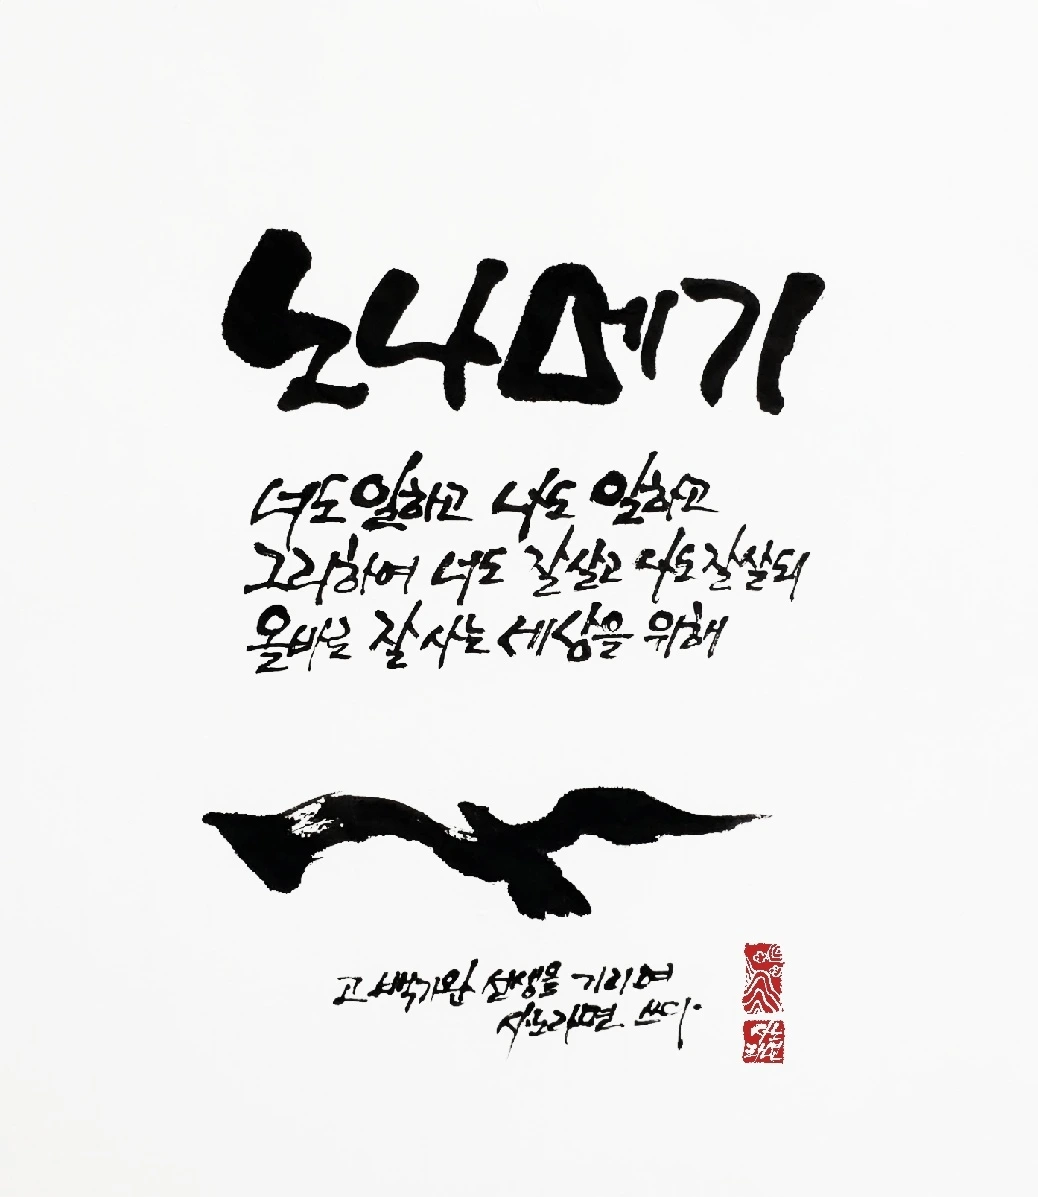 노나메기
너도 일하고 나도 일하고
그리하여 너도 잘 살고 나도 잘 살되
올바로 잘 사는 세상을 위해
고 백기완 선생을 기리며
신노라멸 쓰다.